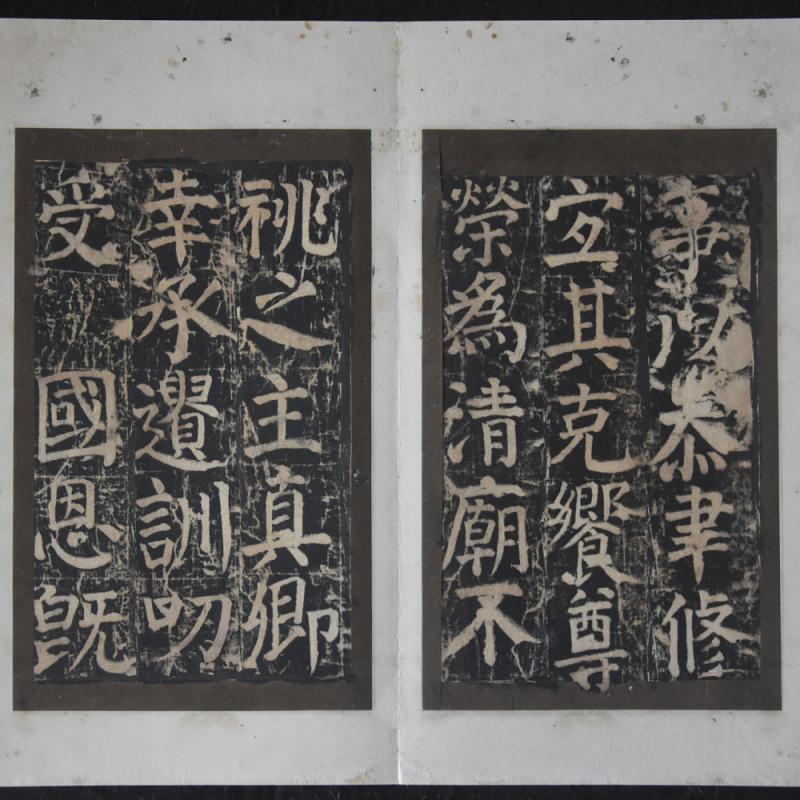 事以恭聿修
宜其克饗尊
榮為清廟不
祧之主真卿
幸承遺訓叨
受國恩既